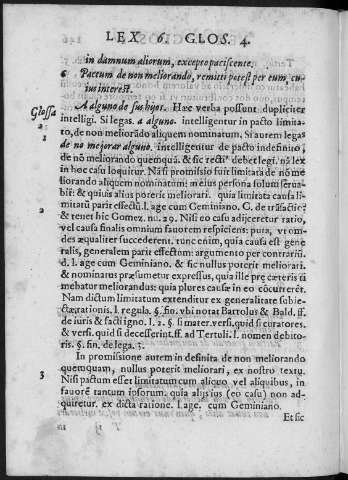 LEX 6. GLOS. 4.
in damnum aliorum, excepto paciscente.
6 Pactum de non meliorando, remitti potest per eum, cu-
ius interest.
Glossa
A alguno de sus hijos. Hæc verba possunt dupliciter
intelligi. Si legas. a alguno. intelligentur in pacto limita-
1 to, de non meliorãdo aliquem nominatum. Si autem legas
de no mejorar alguno. intelligentur de pacto indefinito,
de nõ meliorando quemquã. & sic rectiꝰ debet legi. nã lex
in hoc casu loquitur. Nã si promissio fuit limitata de nõ me
liorando aliquem nominatum: melius persona solum serua-
bit: & quiuis alius poterit meliorari. quia limitata causa li-
mitatũ parit effectũ. l. age cum Geminiano. C. de trãsactiõ:
2 & tenet hic Gomez. nu. 29. Nisi eo casu adijceretur ratio,
vel causa finalis omnium fauorem respiciens: puta, vt om-
des æqualiter succederent. tunc enim, quia causa est gene
ralis, generalem parit effectum: argumento per contrariũ.
d. l. age cum Geminiano. & sic nullus poterit meliorari.
& nominatus præsumetur expressus, quia ille præ cæteris ti
mebatur meliorandus: quia plures causæ in eo cõcurrerẽt.
Nam dictum limitatum extenditur ex generalitate subie-
ctæ rationis. l. regula. §. fin. vbi notat Bartolus & Bald. ff.
de iuris & facti igno. l. 2. §. si mater. versi. quid si curatores.
& versi. quid si decesserint. ff. ad Tertuli. l. nomen debito-
ris. §. fin. de lega. 3.
In promissione autem indefinita de non meliorando
quemquam, nullus poterit meliorari, ex nostro textu.
3 Nisi pactum esset limitatum cum aliquo vel aliquibus, in
fauorẽ tantum ipsorum. quia alijs ius (eo casu) non ad-
quiretur. ex dicta ratione. l. age. cum Geminiano.
Et sic